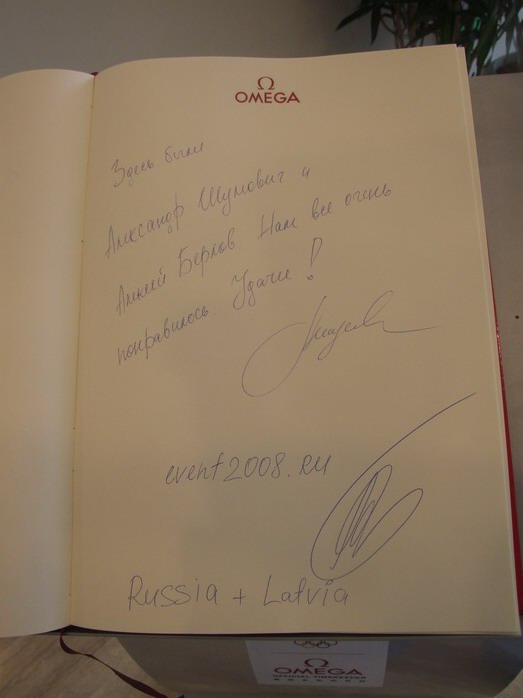 Ω
OMEGA
Здесь были
Александр Шумович и
Алексей Берлов. Нам все очень
понравилось. Удачи!
event2008.eu
Russia + Latvia
Ω
OMEGA
OFFICIAL TIMEKEEPER